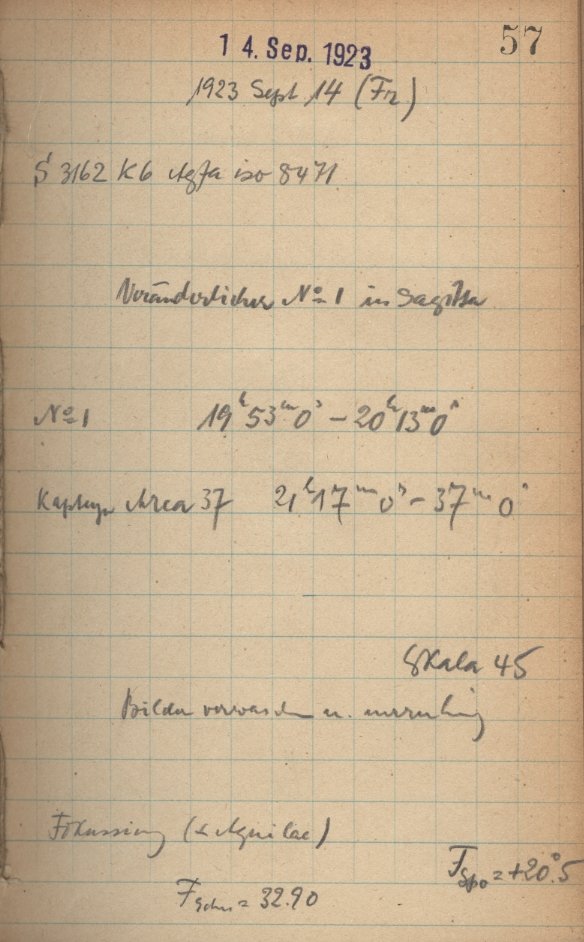 57
14. Sep. 1923
1923 Sept 14 (Fr)
S 3162 K6 Agfa iso 8471
Veränderlicher No 1 in Sagitta
No 1 19h53m0s – 20h13m0s
Kapteyn Area 37 21h17m0s – 37m0s
Skala 45
Bilder verwaschen u. unruhig
Fokussierung (α Aquilae)
F = 32.90
F = +20°.5